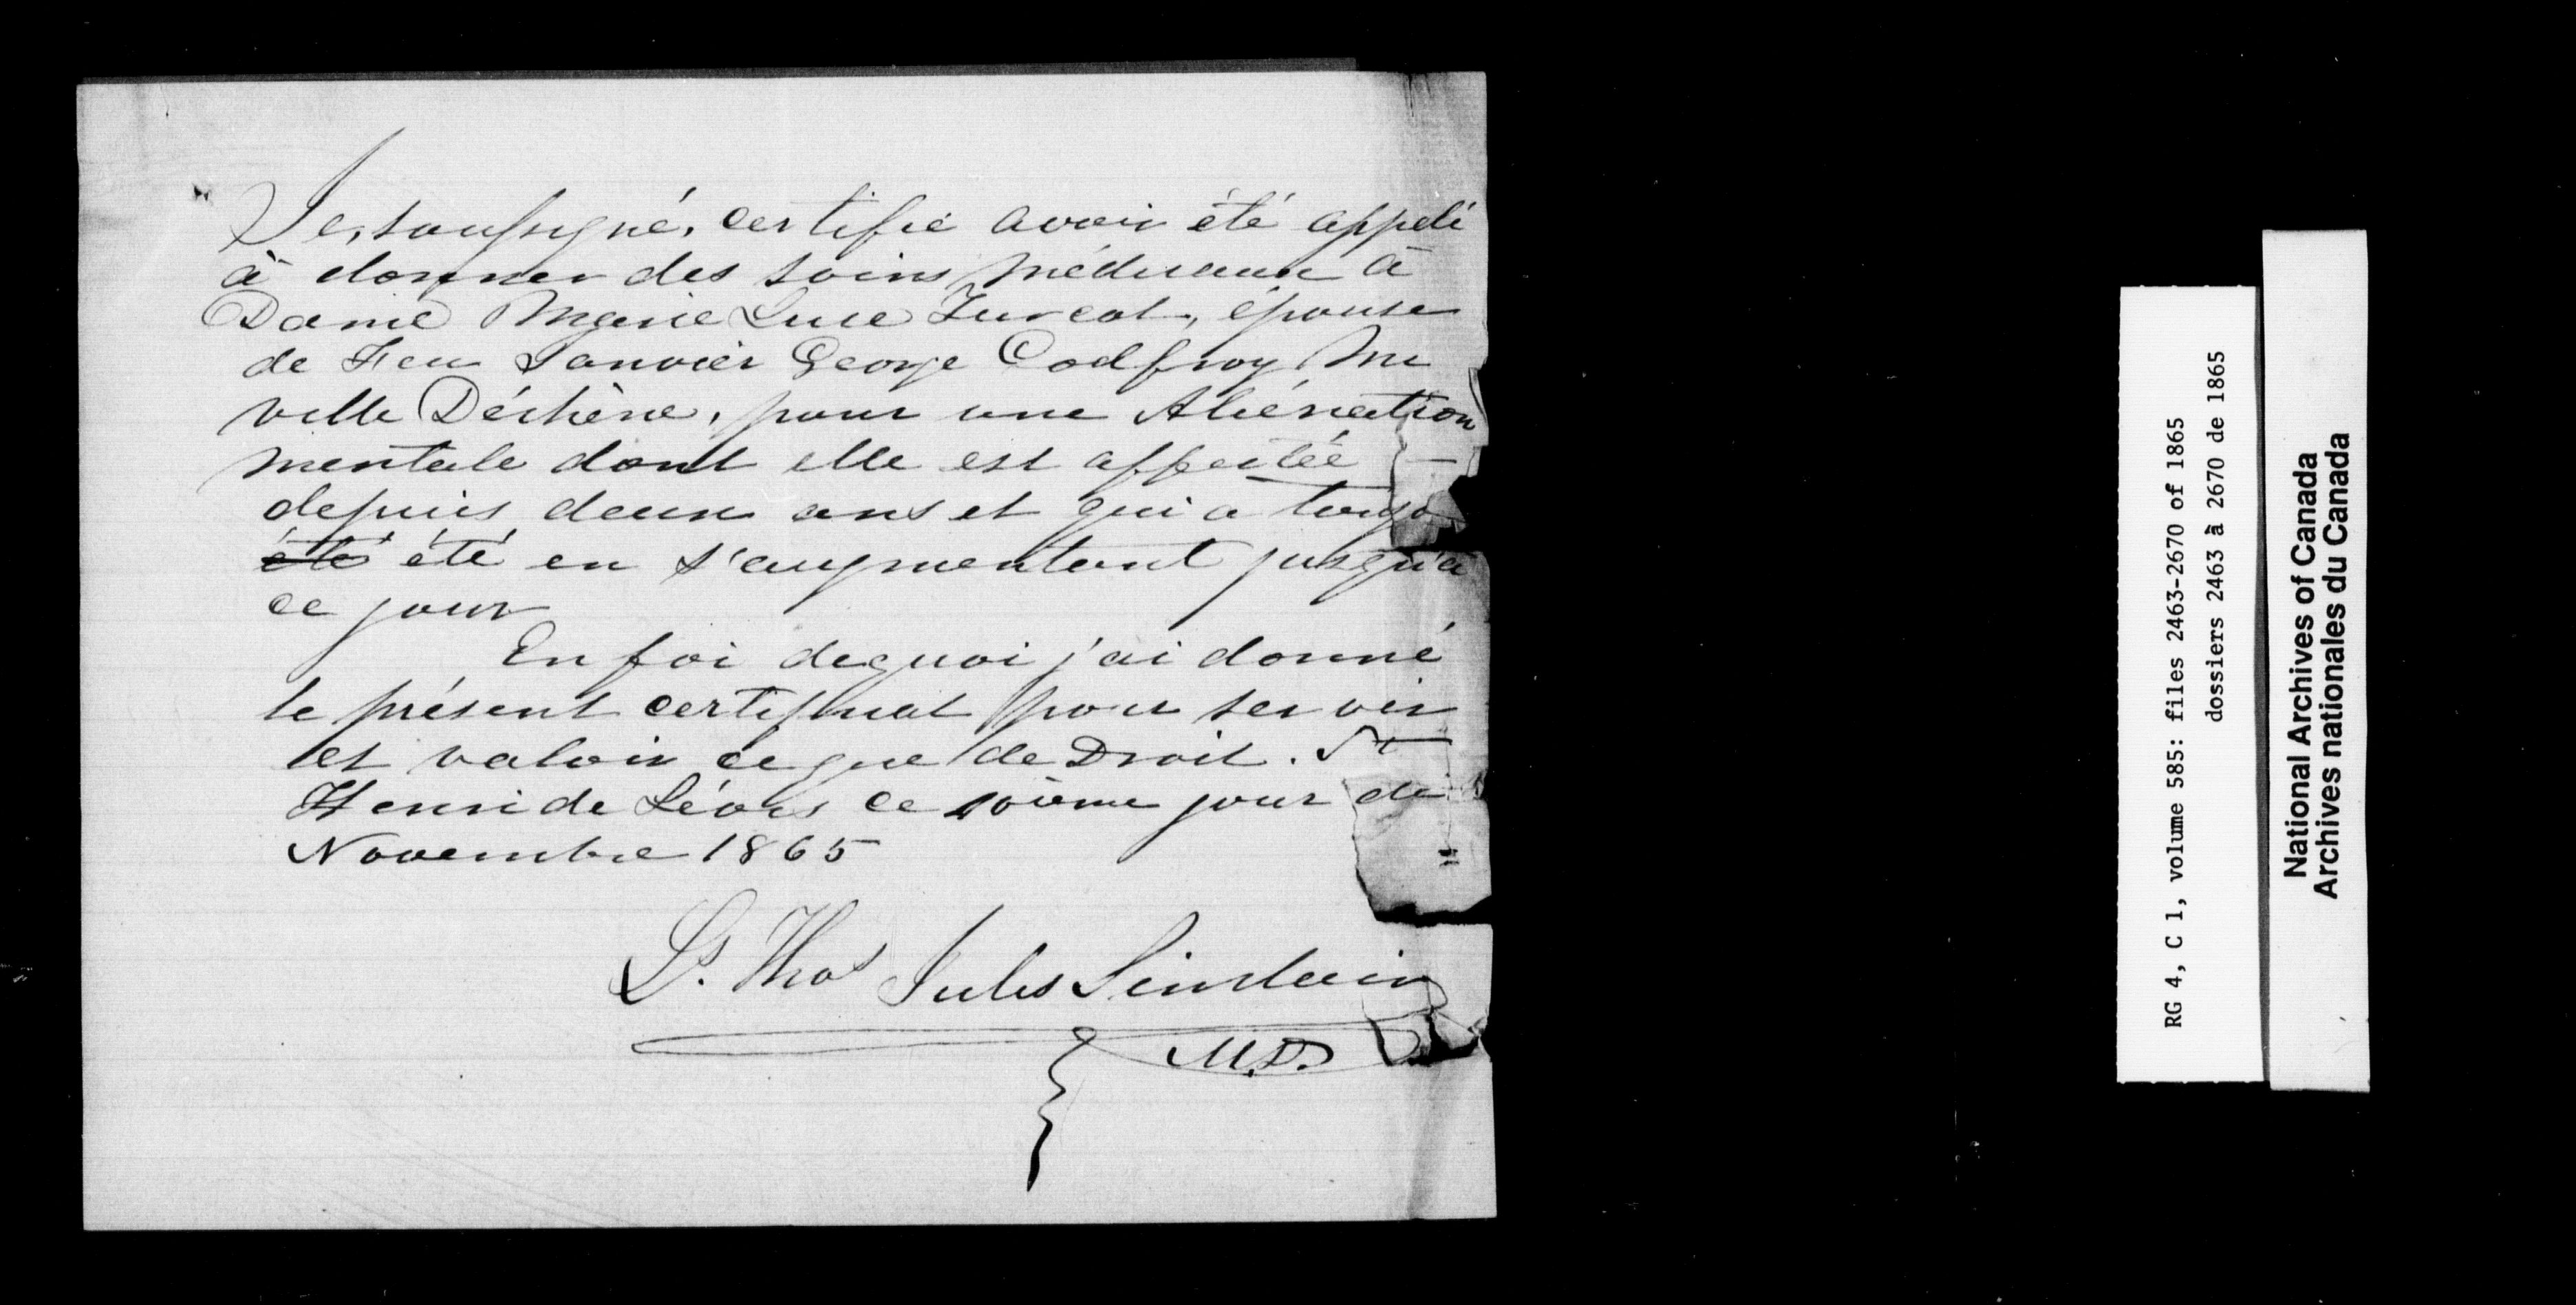 Je, soussigné, certifie avoir été appelé
à donner des soins médicaux à
Dame Marie Luce Turcot, épouse
de Feu Janvier George Godfroy Mi
ville Déchène, pour une Aliénation
mentale dont elle est affectée —
depuis deux ans et qui a toujo
été été en s'augmentant jusqu'à
ce jour
En foi dequoi j'ai donné
le présent certificat pour servir
et valoir ceque de Droit. St
Henri de Lévis ce 10ième jour de
Novembre 1865
Ls. Thos Jules Sinclair
M.D.
RG 4, C 1, volume 585: files 2463-2670 of 1865
dossiers 2463 à 2670 de 1865
National Archives of Canada
Archives nationales du Canada